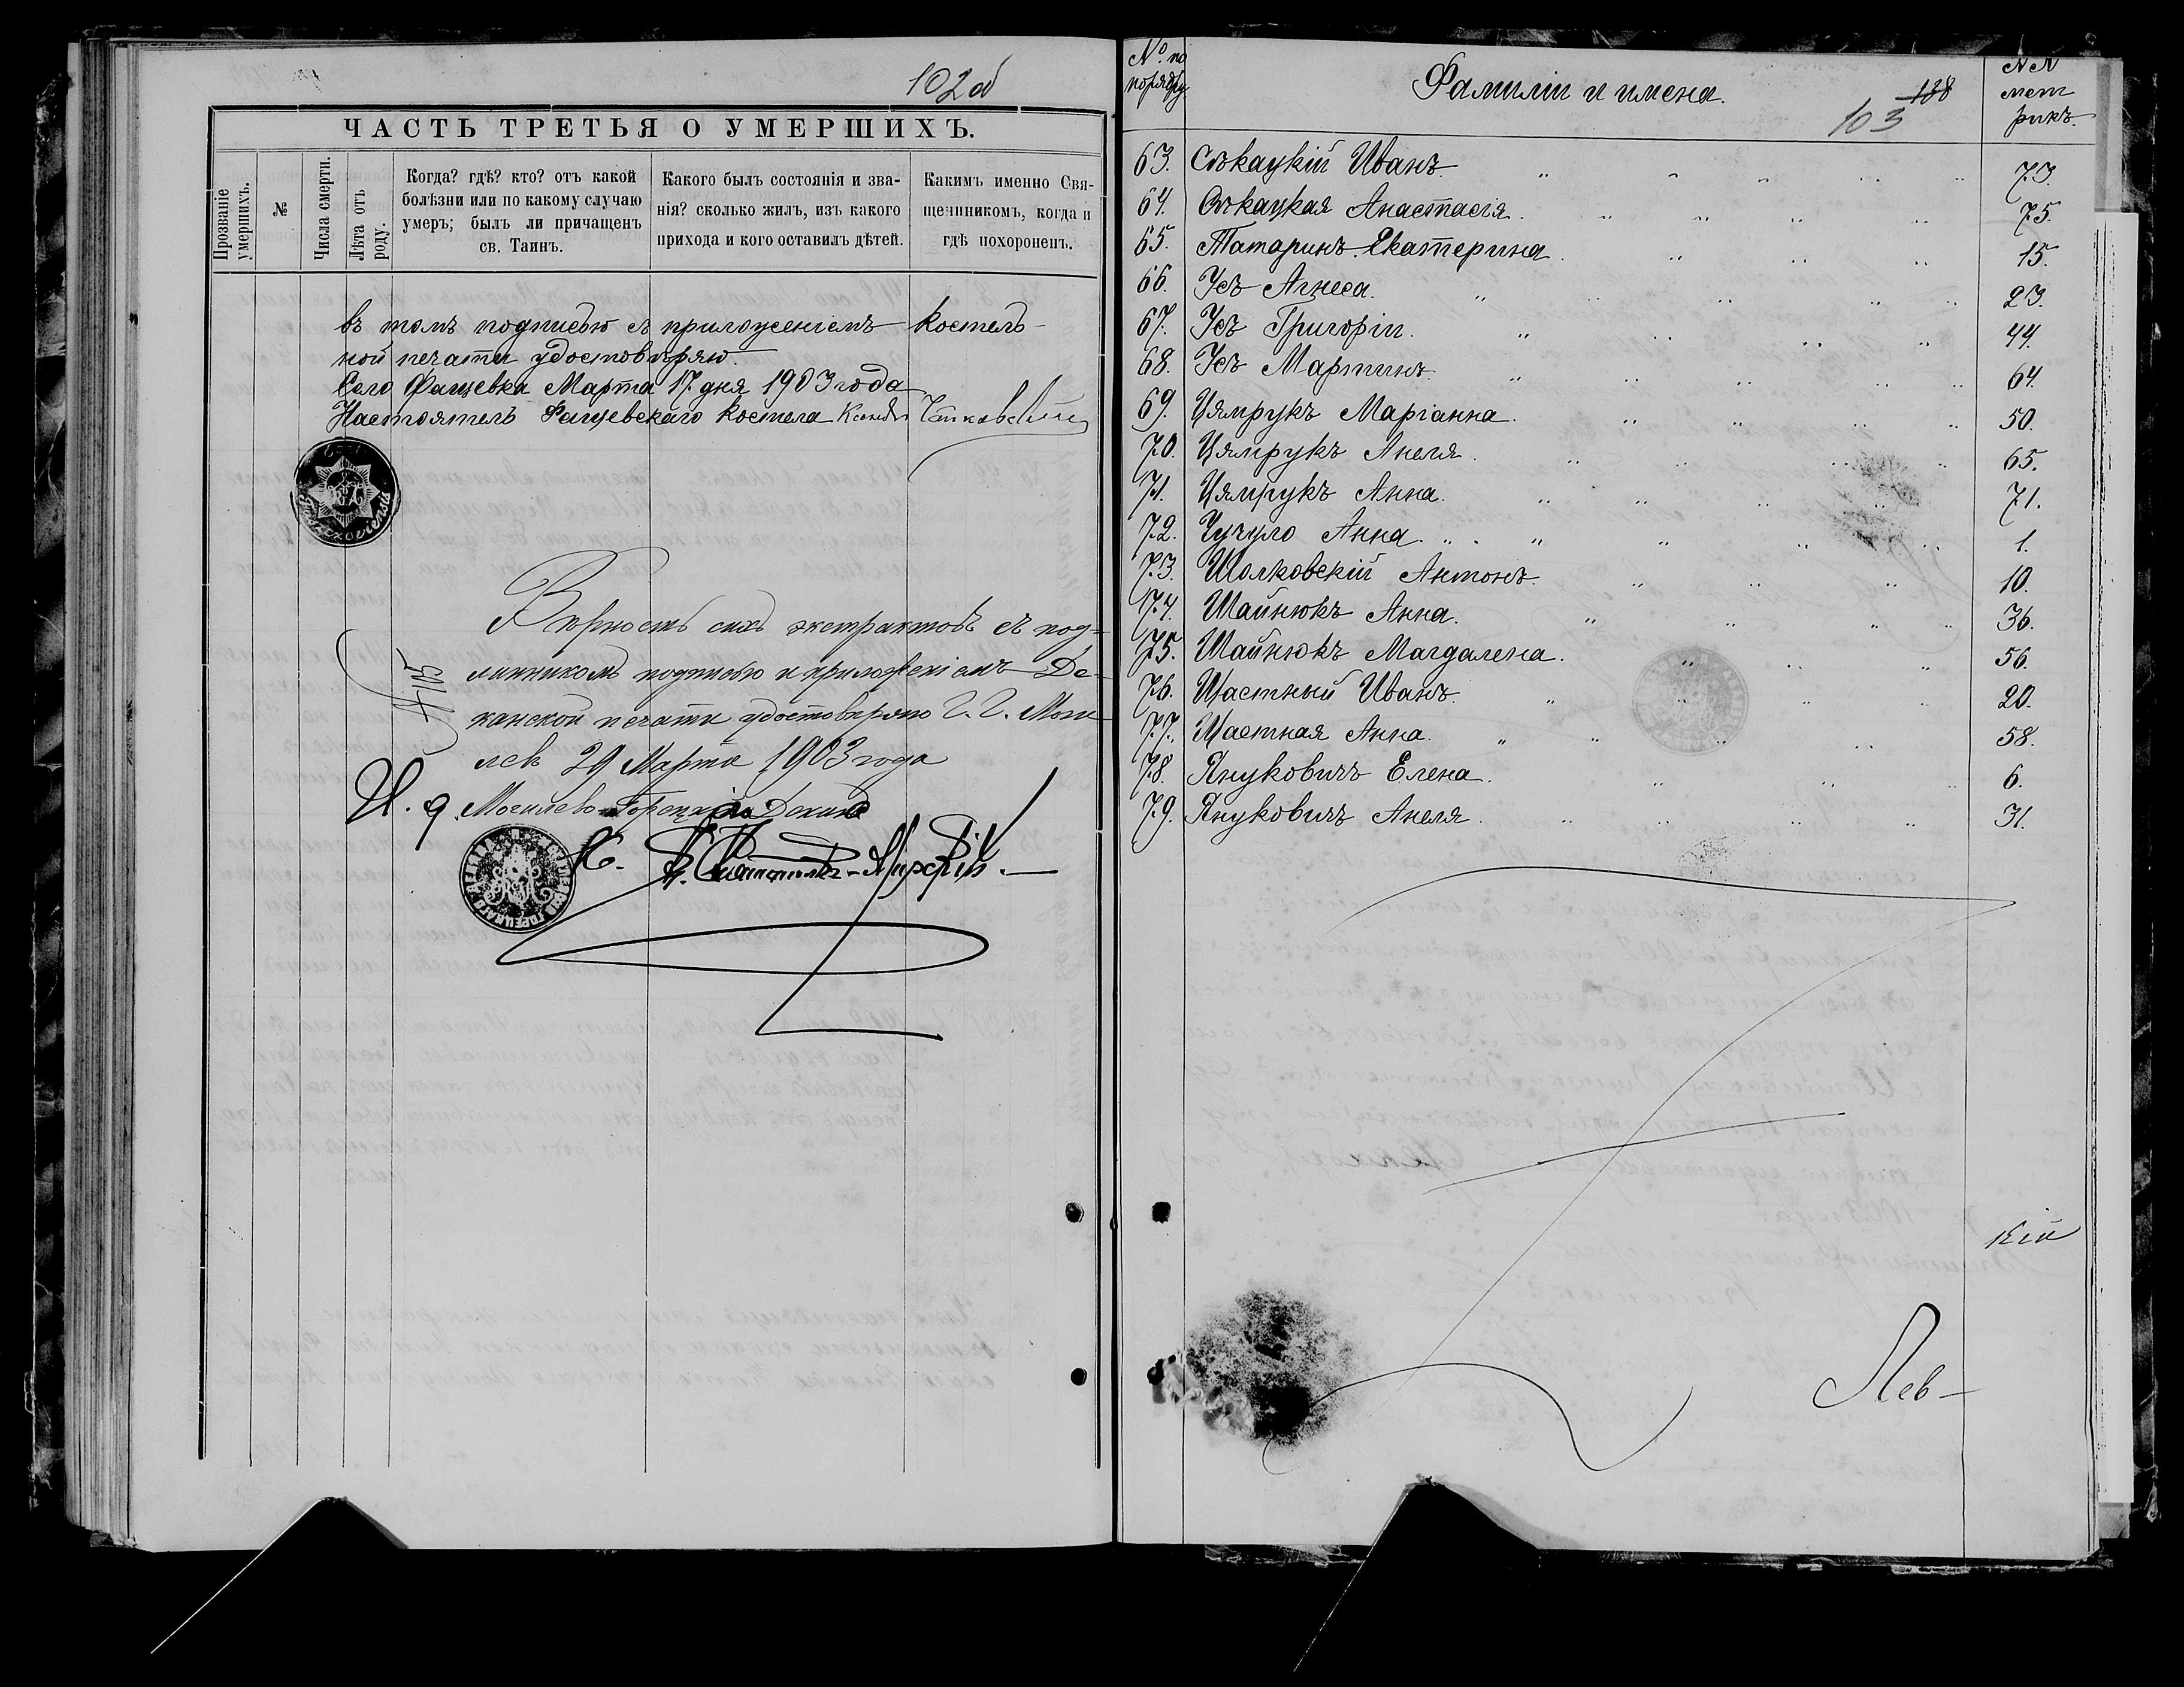 102об
ЧАСТЬ ТРЕТЬЯ О УМЕРШИХЪ.
Прозваніе умершихъ.
№
Числа смерти.
Лѣта отъ роду.
Когда? гдѣ? кто? отъ какой
болѣзни или по какому случаю
умеръ; былъ ли причащенъ
св. Таинъ.
Какого былъ состоянія и зва-
нія? сколько жилъ, изъ какого
прихода и кого оставилъ дѣтей.
Какимъ именно Свя-
щенникомъ, когда и
гдѣ похороненъ.
въ томъ подписью съ приложеніемъ костель-
ной печати удостовѣряю.
Село Фащевка Марта 17 дня 1903 года
Настоятель Фащевскаго костела Ксендзъ
Вѣрность сихъ экстрактовъ съ под-
линникомъ подписью и приложеніемъ Де-
канской печати удостовѣряю Г. Г. Моги-
левъ 29 Марта 1903 года
И. д. Могилево-Горецкій Деканъ
К.
№ по порядку.
Фамиліи и имена.
188
103
№№ мет рикъ.
63. Сѣкацкій Иванъ. 73.
64. Сѣкацкая Анастасія. 75.
65. Татаринъ Екатерина. 15.
66. Усъ Агнеса. 23.
67. Усъ Григорій. 44.
68. Усъ Мартинъ. 64.
69. Цямрукъ Маріанна. 50.
70. Цямрукъ Анеля. 65.
71. Цямрукъ Анна. 71.
72. Чучуло Анна. 1.
73. Шолковскій Антонъ. 10.
74. Шайнюкъ Анна. 36.
75. Шайнюкъ Магдалена. 56.
76. Щастный Иванъ. 20.
77. Щастная Анна. 58.
78. Януковичъ Елена. 6.
79. Януковичъ Анеля. 31.
кій
Лев-